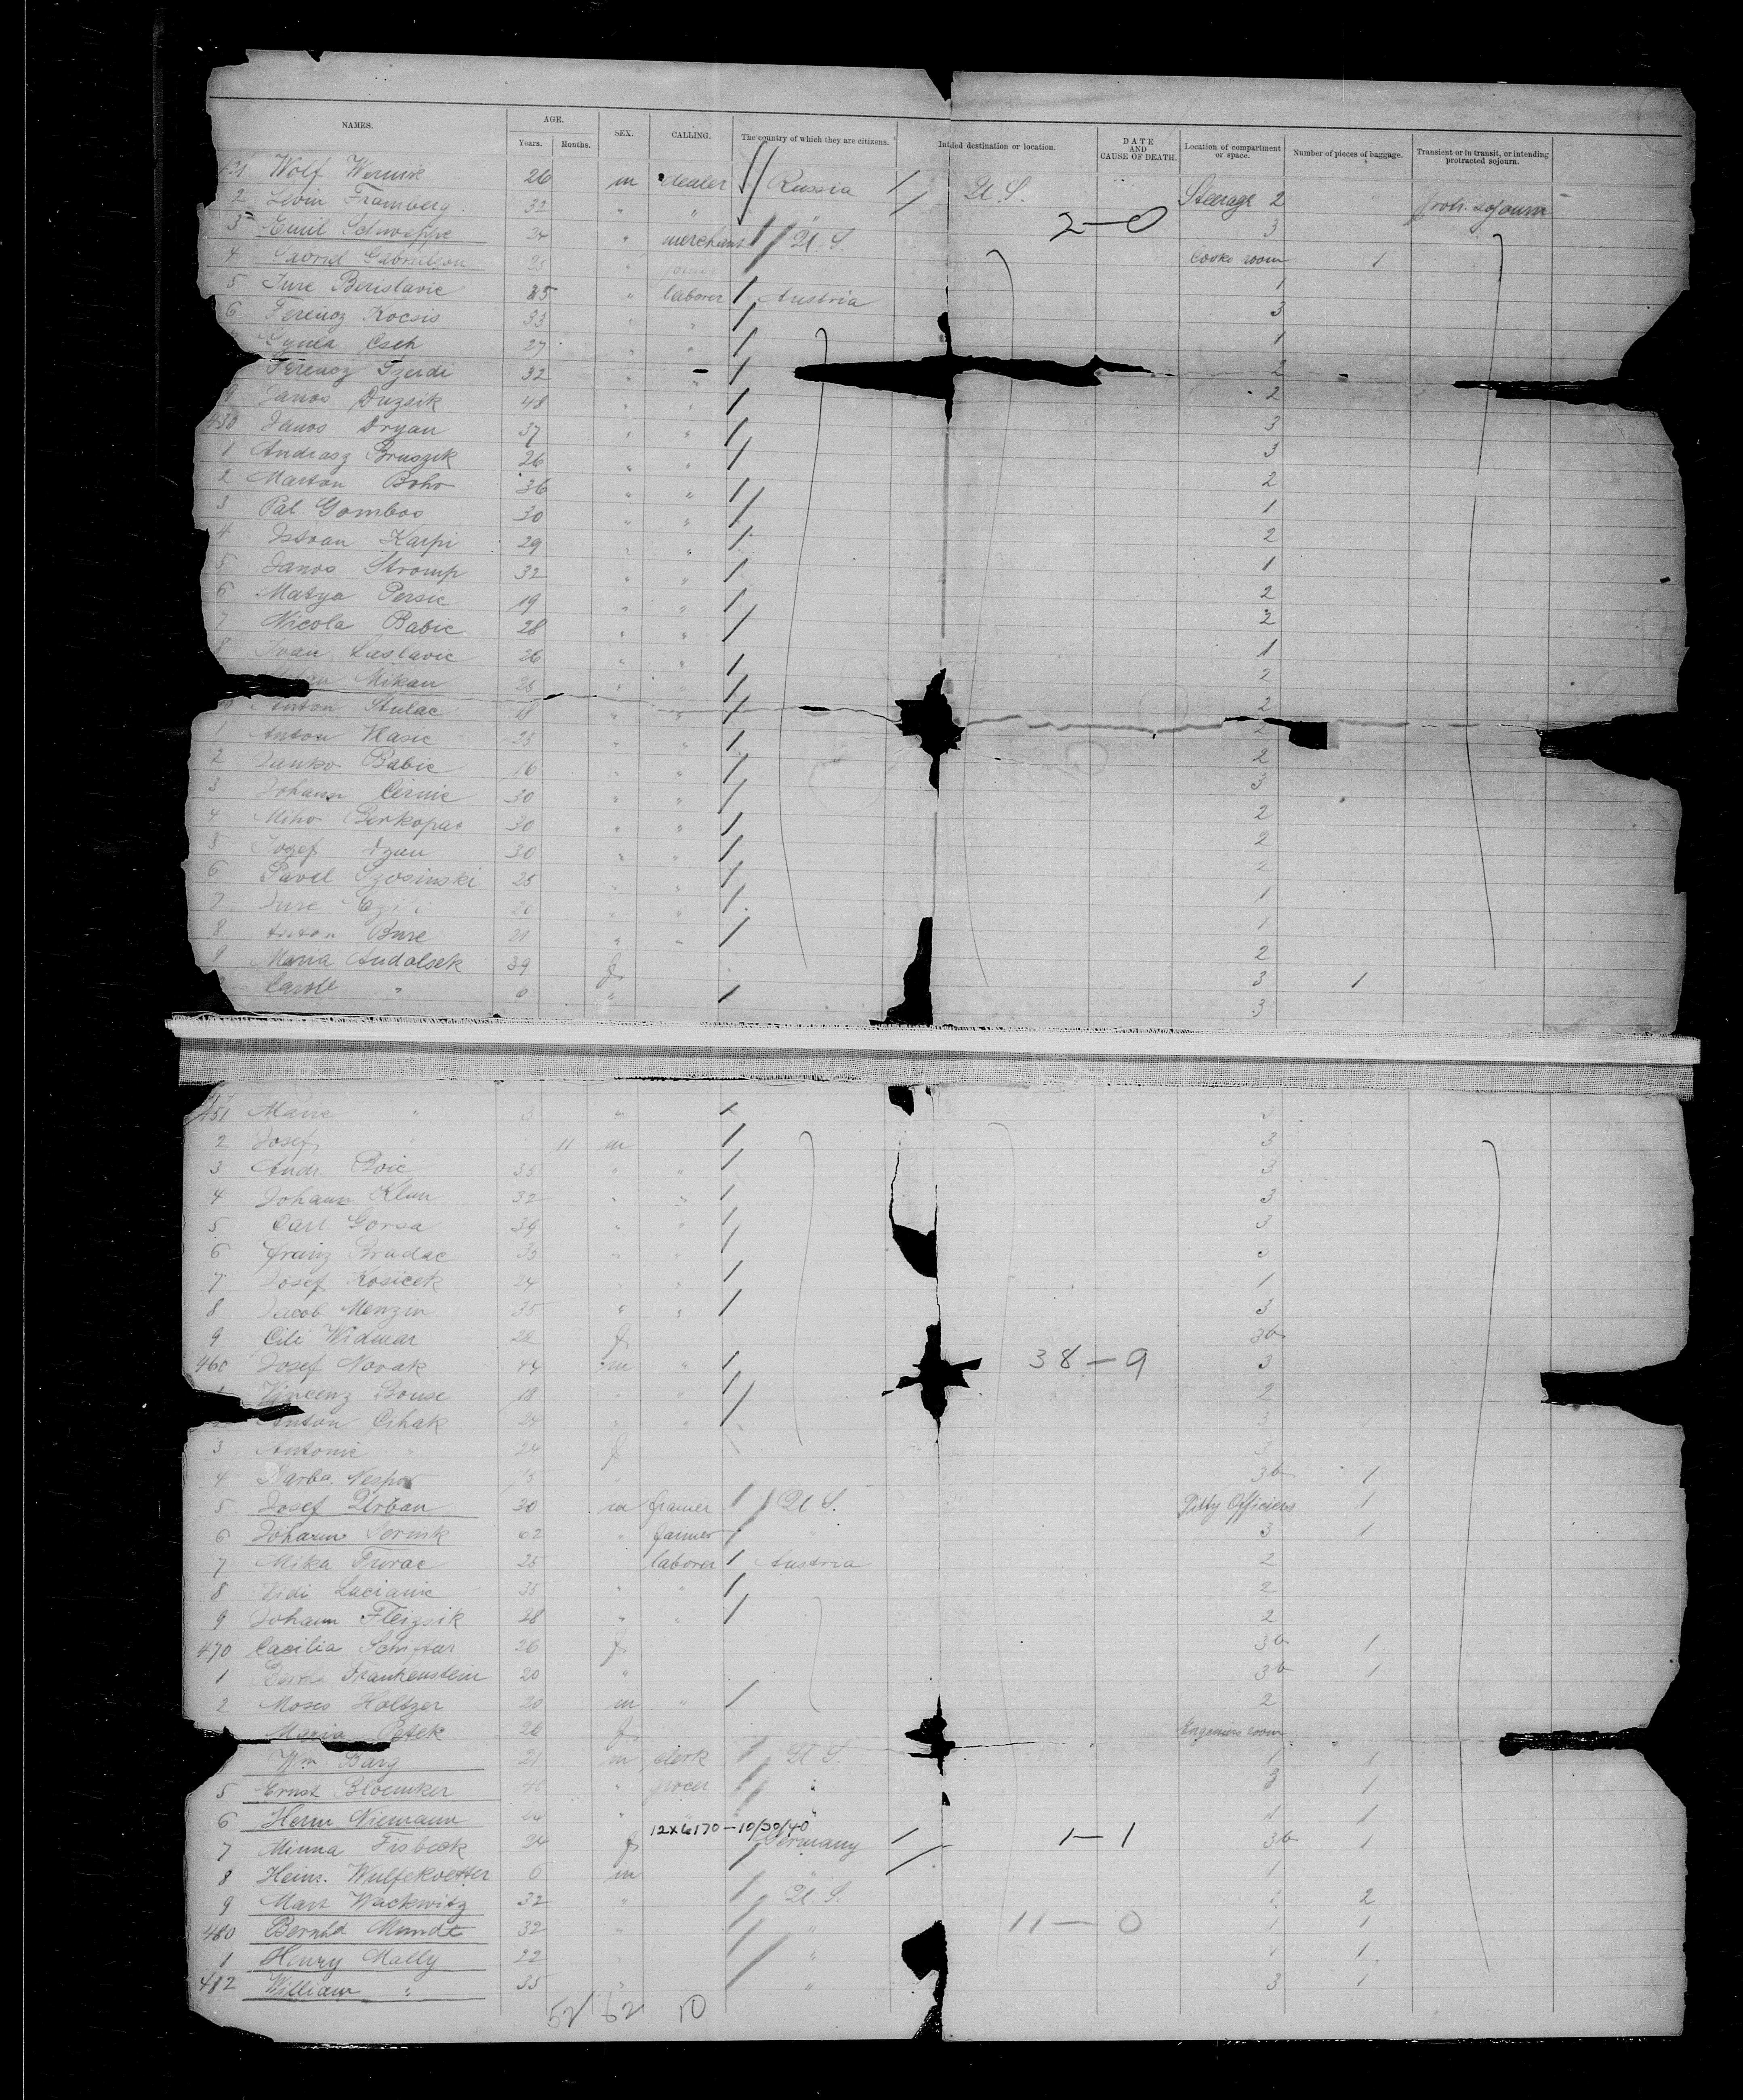 NAMES. AGE. Years. Months. SEX. CALLING. The country of which they are citizens. Intended destination or location. DATE AND CAUSE OF DEATH. Location of compartment or space. Number of pieces of baggage. Transient or in transit, or intending protracted sojourn.
Wolf Wernik 26 m dealer Russia U S. Steerage 2 protr. sojourn
2 Framberg 32 " " " 2—0 3
3 Emil Schwoppe 24 " merchant U. S. Cooks room 1
4 Gabrielson 25 " joiner 1
5 Jure Berislavic 35 " laborer Austria 3
6 Ferencz Kocsis 33 " " 1
Gyula Cseh 27 " " 2
Ferencz Szerdi 32 " " 2
9 Janos Duzsik 48 " " 3
430 Janos Dryan 37 " " 3
1 Andrasz Bruszik 26 " " 2
2 Marton Boho 36 " " 1
3 Pal Gombos 30 " " 2
4 Istvan Karpi 29 " " 1
5 Janos Stromp 32 " " 2
6 Matya Persic 19 " " 2
7 Nicola Babic 28 " " 1
8 Ivan Laslavic 26 " " 2
Mikan 28 " " 2
Anton Stulac 18 " " 2
1 Anton Klasic 25 " " 2
2 Janko Babic 16 " " 3
3 Johann Cernic 30 " " 2
4 Miho Berkopac 30 " " 2
5 Josef 30 " " 2
6 Pavel Szosinski 25 " " 1
7 Jure " " 1
8 Anton Bure 21 " " 2
9 Maria Andolsek 39 f 3 1
" 6 " 3
451 Marie " 3 " 3
2 Josef " 11 m 3
3 Andr. Boic 35 " " 3
4 Johann Klun 32 " " 3
5 Carl Gorsa 39 " " 3
6 Franz Bradac 35 " " 3
7 Josef Kosicek 24 " " 1
8 Jacob Menzin 35 " " 3
9 Cili Widmar 22 f 3b
460 Josef Novak 44 m " 38—9 3
1 Vincenz Bouse 18 " " 2
Anton Cihak 24 " " 3
3 Antonie " 24 f 3
4 Barba. Nespor " 3b 1
5 Josef Urban 30 m framer U S. Pitty Officiers 1
6 Johann 62 " farmer " 3 1
7 Mika Turac 25 laborer Austria 2
8 Vidi Lucianic 35 " " 2
9 Johann Fleizsik 28 " " 2
470 Cacilia Schiffar 26 f 3b 1
1 Frankenstein 20 " 3b 1
2 Moses Holtzer 20 m " 2
Maria Petek 26 f Engeniers room
Wm Barg 21 m clerk U S. 1 1
5 Ernst Bloemker 40 " grocer " 3 1
6 Herm Niemann 26 " " " 1 1
12x6170—10/30/40
7 Minna Fisbeck 24 f Germany 1—1 3b 1
8 Heinr. Wulfekoetter 6 m " 1
9 Mart Wackwitz 32 " U S. 2
480 Bernhd Mundt 32 " " 11—0 1 1
1 Henry Mally 22 " " 1 1
482 William " 35 " " 3 1
52 62 10